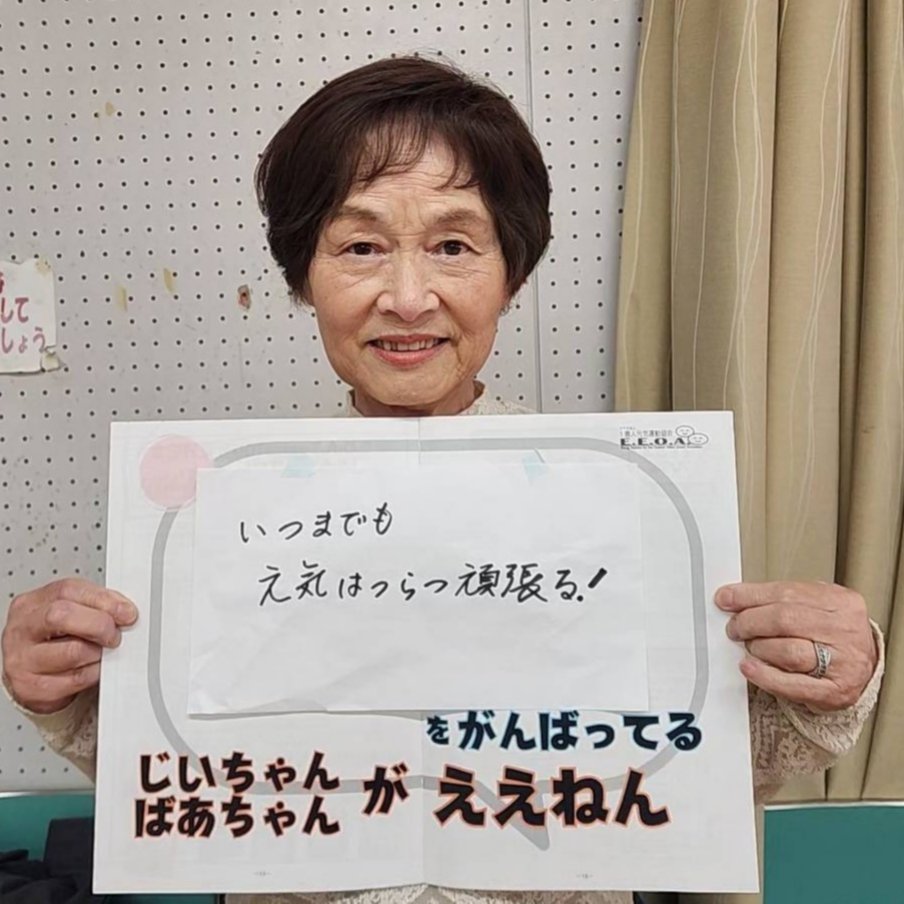 して
しょう
E.E.O.A
いつまでも
元気はつらつ頑張る!
をがんばってる
じいちゃん
ばあちゃん
が
ええねん